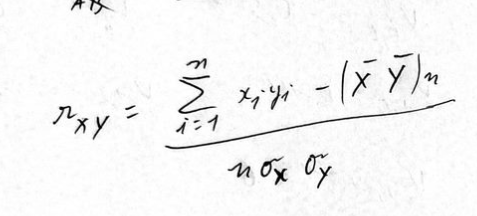 r_xy = \frac{\sum_{i=1}^{n} x_i y_i - (\bar{x} \bar{y}) n}{n σ_x σ_y}